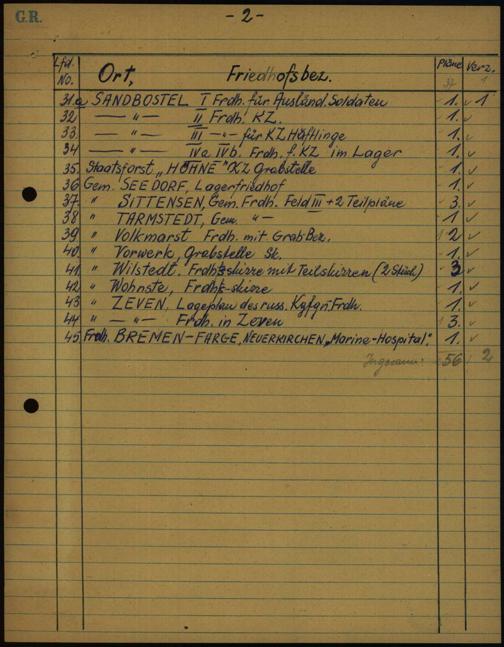 G.R.
- 2 -
Lfd. No. Ort, Friedhofsbez. Pläne Verz.
37 1
31.a SANDBOSTEL I Frdh. für Ausländ. Soldaten 1. ✓ 1
32 — " — II Frdh. KZ. 1. ✓
33 — " — III — " — für KZ Häftlinge 1. ✓
34 — " — IVa IVb. Frdh. f. KZ im Lager 1. ✓
35. Staatsforst „HÖHNE" KZ Grabstelle 1. ✓
36 Gem. SEEDORF, Lagerfriedhof 1. ✓
37. " SITTENSEN, Gem. Frdh. Feld III + 2 Teilpläne 3. ✓
38 " TARMSTEDT, Gem. — " — 1 ✓
39 " Volkmarst Frdh. mit Grab Bez. 2 ✓
40. " Vorwerk, Grabstelle Sk. 1. ✓
41. " Wilstedt. Frdh.skizze mit Teilskizzen (2 Stück) 3 ✓
42 " Wohnste, Frdh.-skizze 1. ✓
43 " ZEVEN, Lageplan des russ. Kgfgn Frdh. 1. ✓
44 " — " — Frdh. in Zeven 3. ✓
45 Frdh. BREMEN-FARGE, NEUERKIRCHEN, „Marine-Hospital". 1. ✓
Insgesamt: 56 2